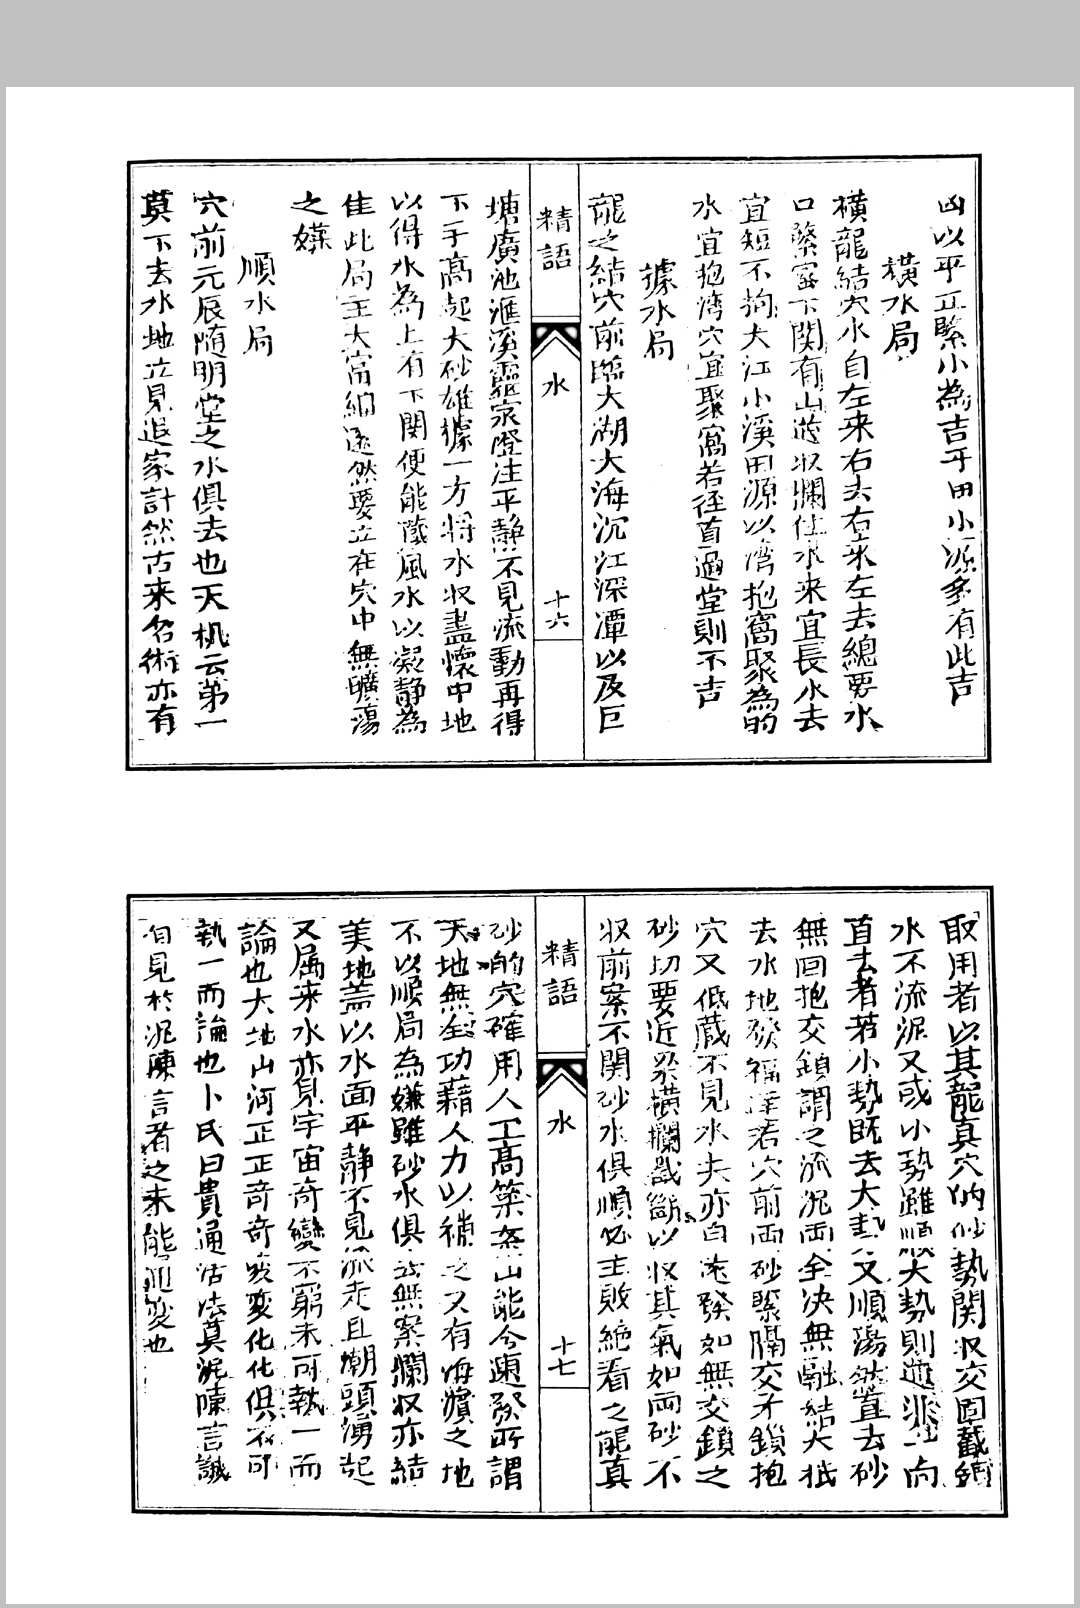 凶以平正緊小為吉平田小源多有此吉
橫水局
橫龍結穴水自左來右去右來左去總要水
口緊密下關有山遊收攔住水來宜長水去
宜短不拘大江小溪田源以灣抱窩聚為的
水宜抱灣穴宜聚窩若徑直過堂則不吉
據水局
龍之結穴前臨大湖大海沉江深潭以及巨
精語
水
十六
塘廣池滙溪靈泉澄注平静不見流動再得
下手高起大砂雄據一方將水収盡懷中地
以得水為上有下関便能藏風水以凝静為
佳此局主大富綿遠然要立在穴中無曠蕩
之嫌
順水局
穴前元辰随明堂之水俱去也天机云第一
莫下去水地立見退家計然古来名術亦有
取用者以其龍真穴的砂勢関収交固截
水不流泥又或小勢雖順大勢則逆非一向
直去者若小勢既去大又順蕩然直去砂
無回抱交鎖謂之流泥両全决無融結大抵
去水地發福達若穴前両砂緊隔交牙鎖抱
穴又低蔵不見水夫亦自悠發如無交鎖之
砂切要近案橫攔截斷以収其氣如両砂不
収前案不関砂水俱順必主敗絶看之龍真
精語
水
十七
砂的穴確用人工高築案山能令速發所謂
天地無全功藉人力以補之又有海濱之地
不以順局為嫌雖砂水俱去無案攔収亦結
美地盖以水面平静不見流走且潮頭湧起
又属来水亦見宇宙奇變不窮未可執一而
論也大地山河正正奇奇変変化化俱不可
執一而論也卜氏曰貴通活法莫泥陳言誠
有見於泥陳言者之未能通変也